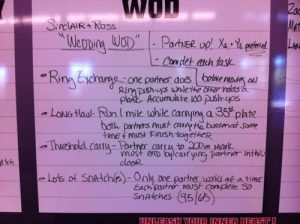 WOD
Sinclair + Ross
"Wedding WOD"
- Partner up! Xs + Ys preferred
- Complet each task
before moving on
• Ring Exchange - one partner does
Ring push-ups while the other holds a
plank. Accumulate 100 push-ups
• Long Haul - Run 1 mile while carrying a 35# plate
both partners must carry the burden at some
time + must finish together
• Threshold carry - Partner carry to 200m mark
must end by carrying partner thru
door
• Lots of Snatch(es) - Only one partner works at a time
Each partner must complete 30
snatches (95/65)
UNLEASH YOUR INNER BEAST!